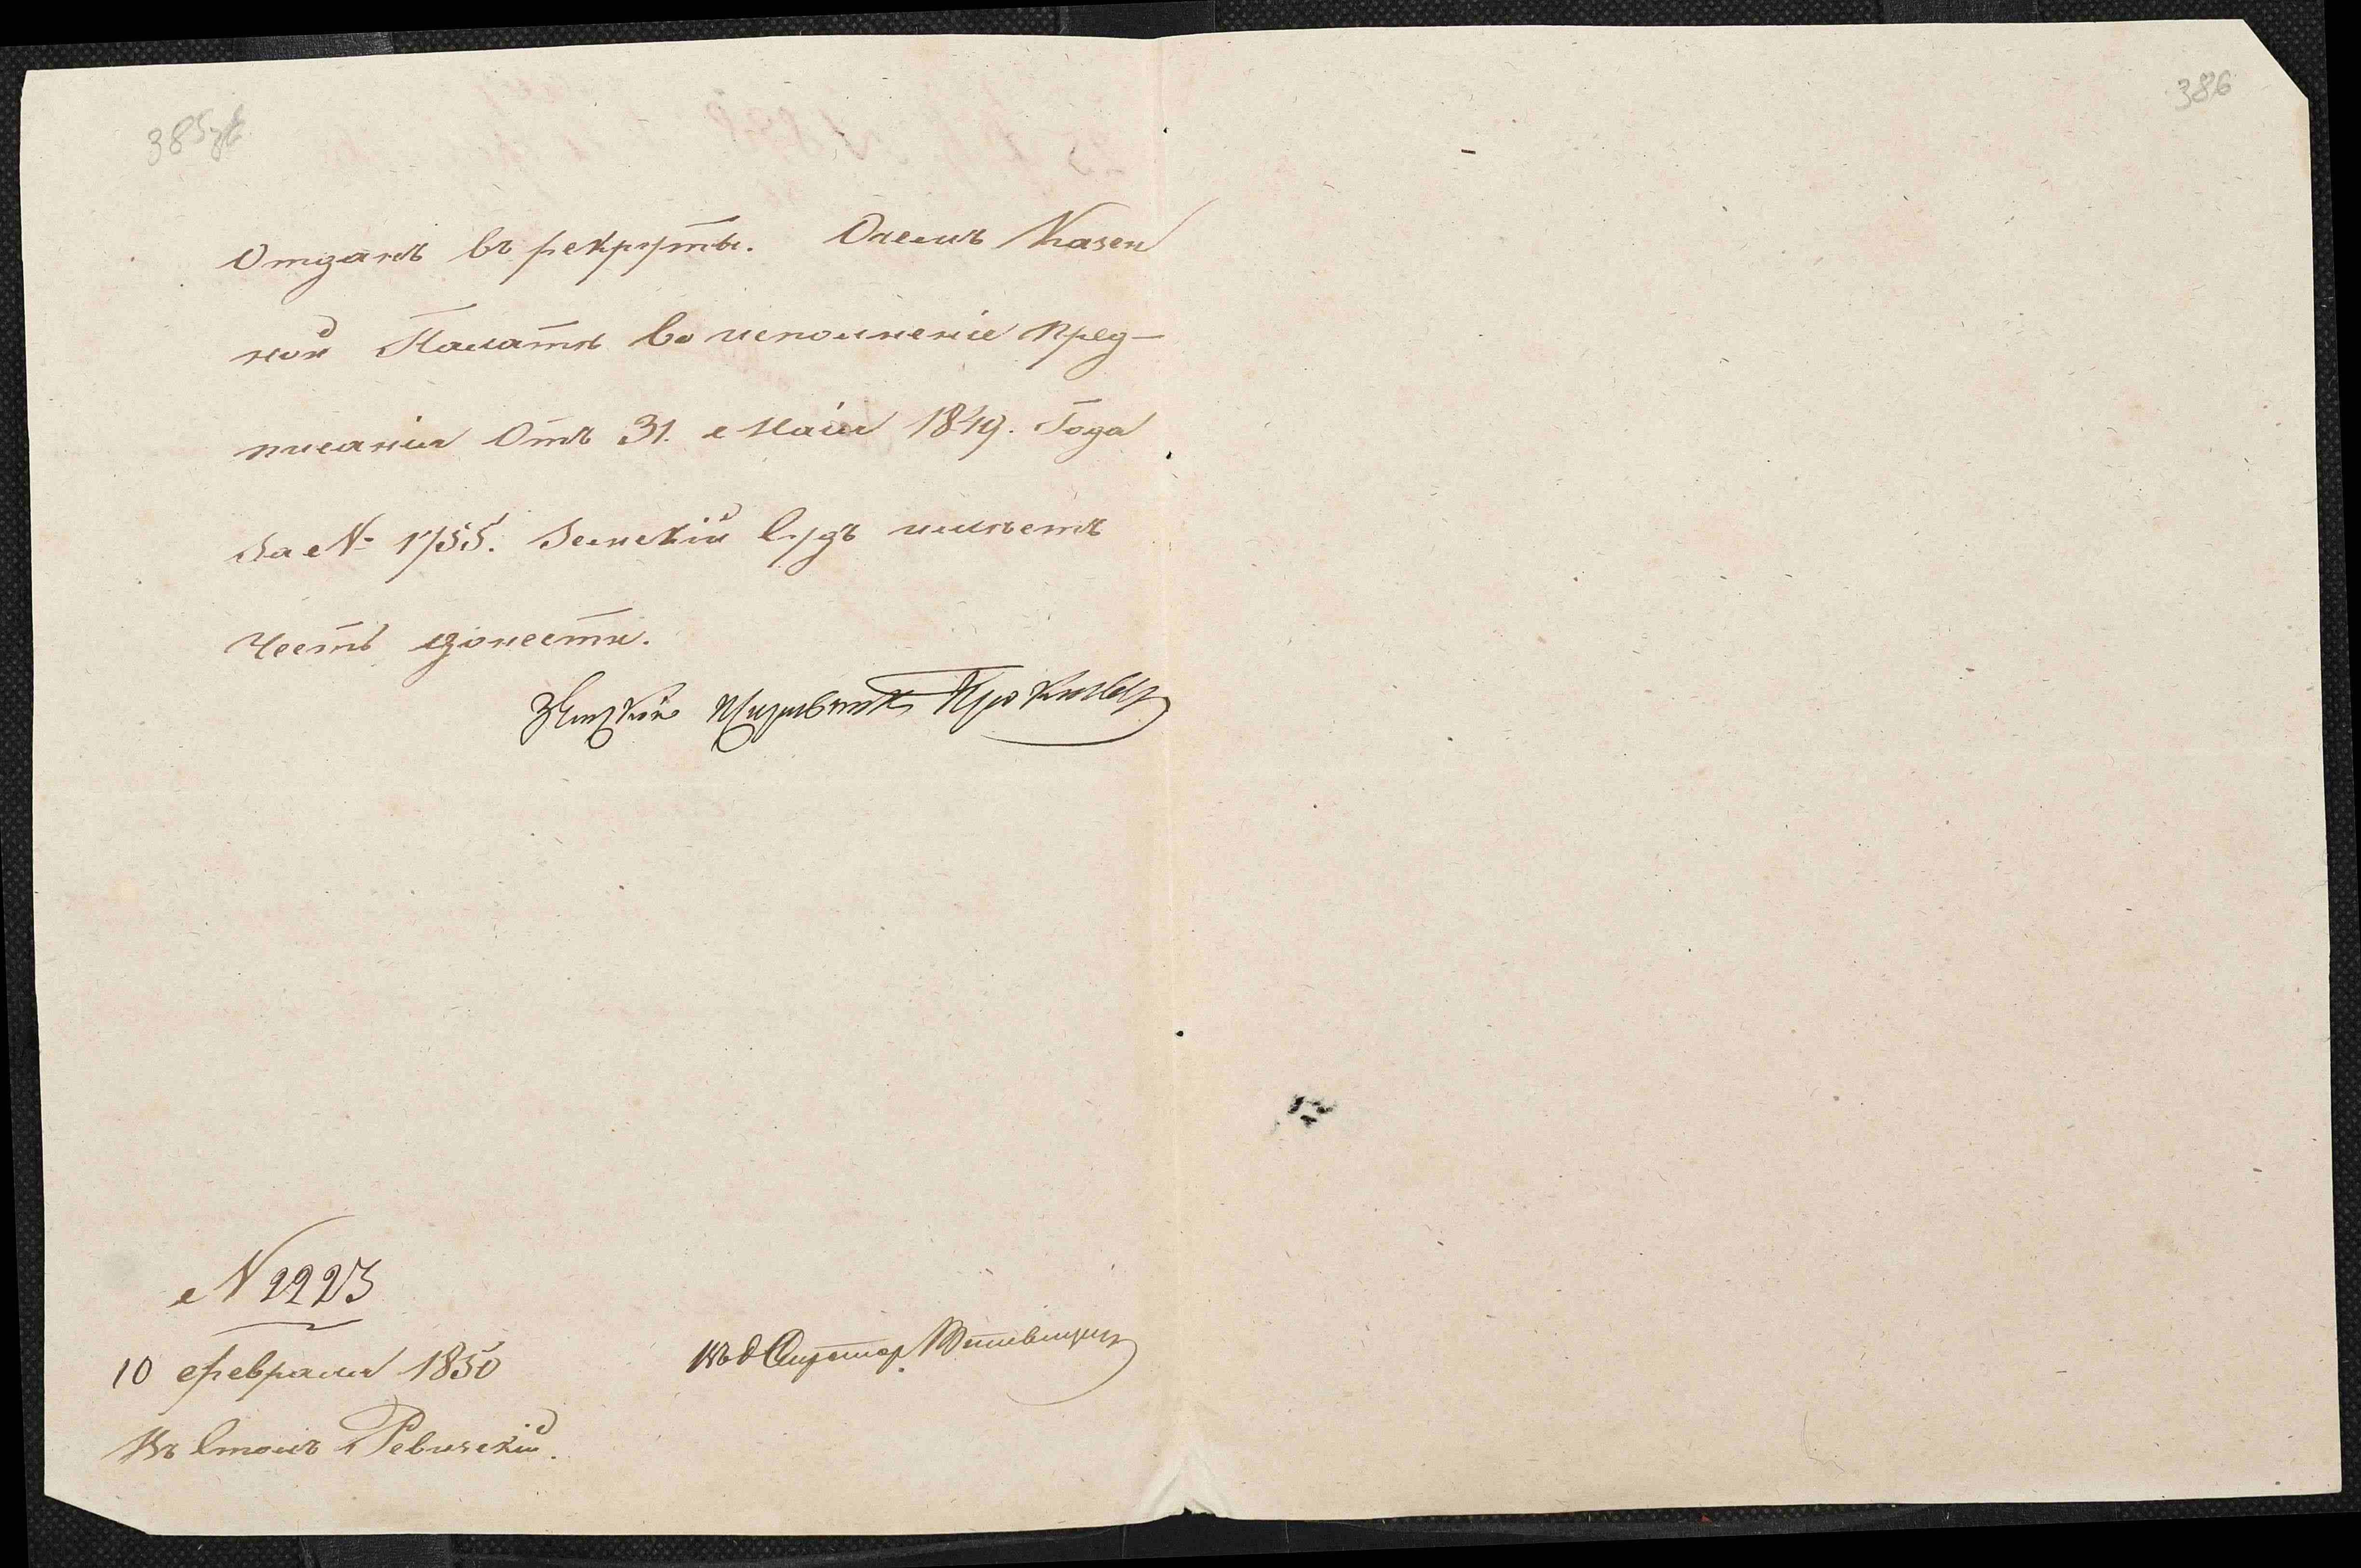 385зв
386
Отданъ въ рекруты. О чемъ Казен
ной Палатѣ во исполненіе пред-
писанія Отъ 31. Маія 1849. Года
За № 1755. Земскій Судъ имѣетъ
Честь донести.
Земскій
№ 2223
10 февраля 1850
Въ Столъ Ревизскій.